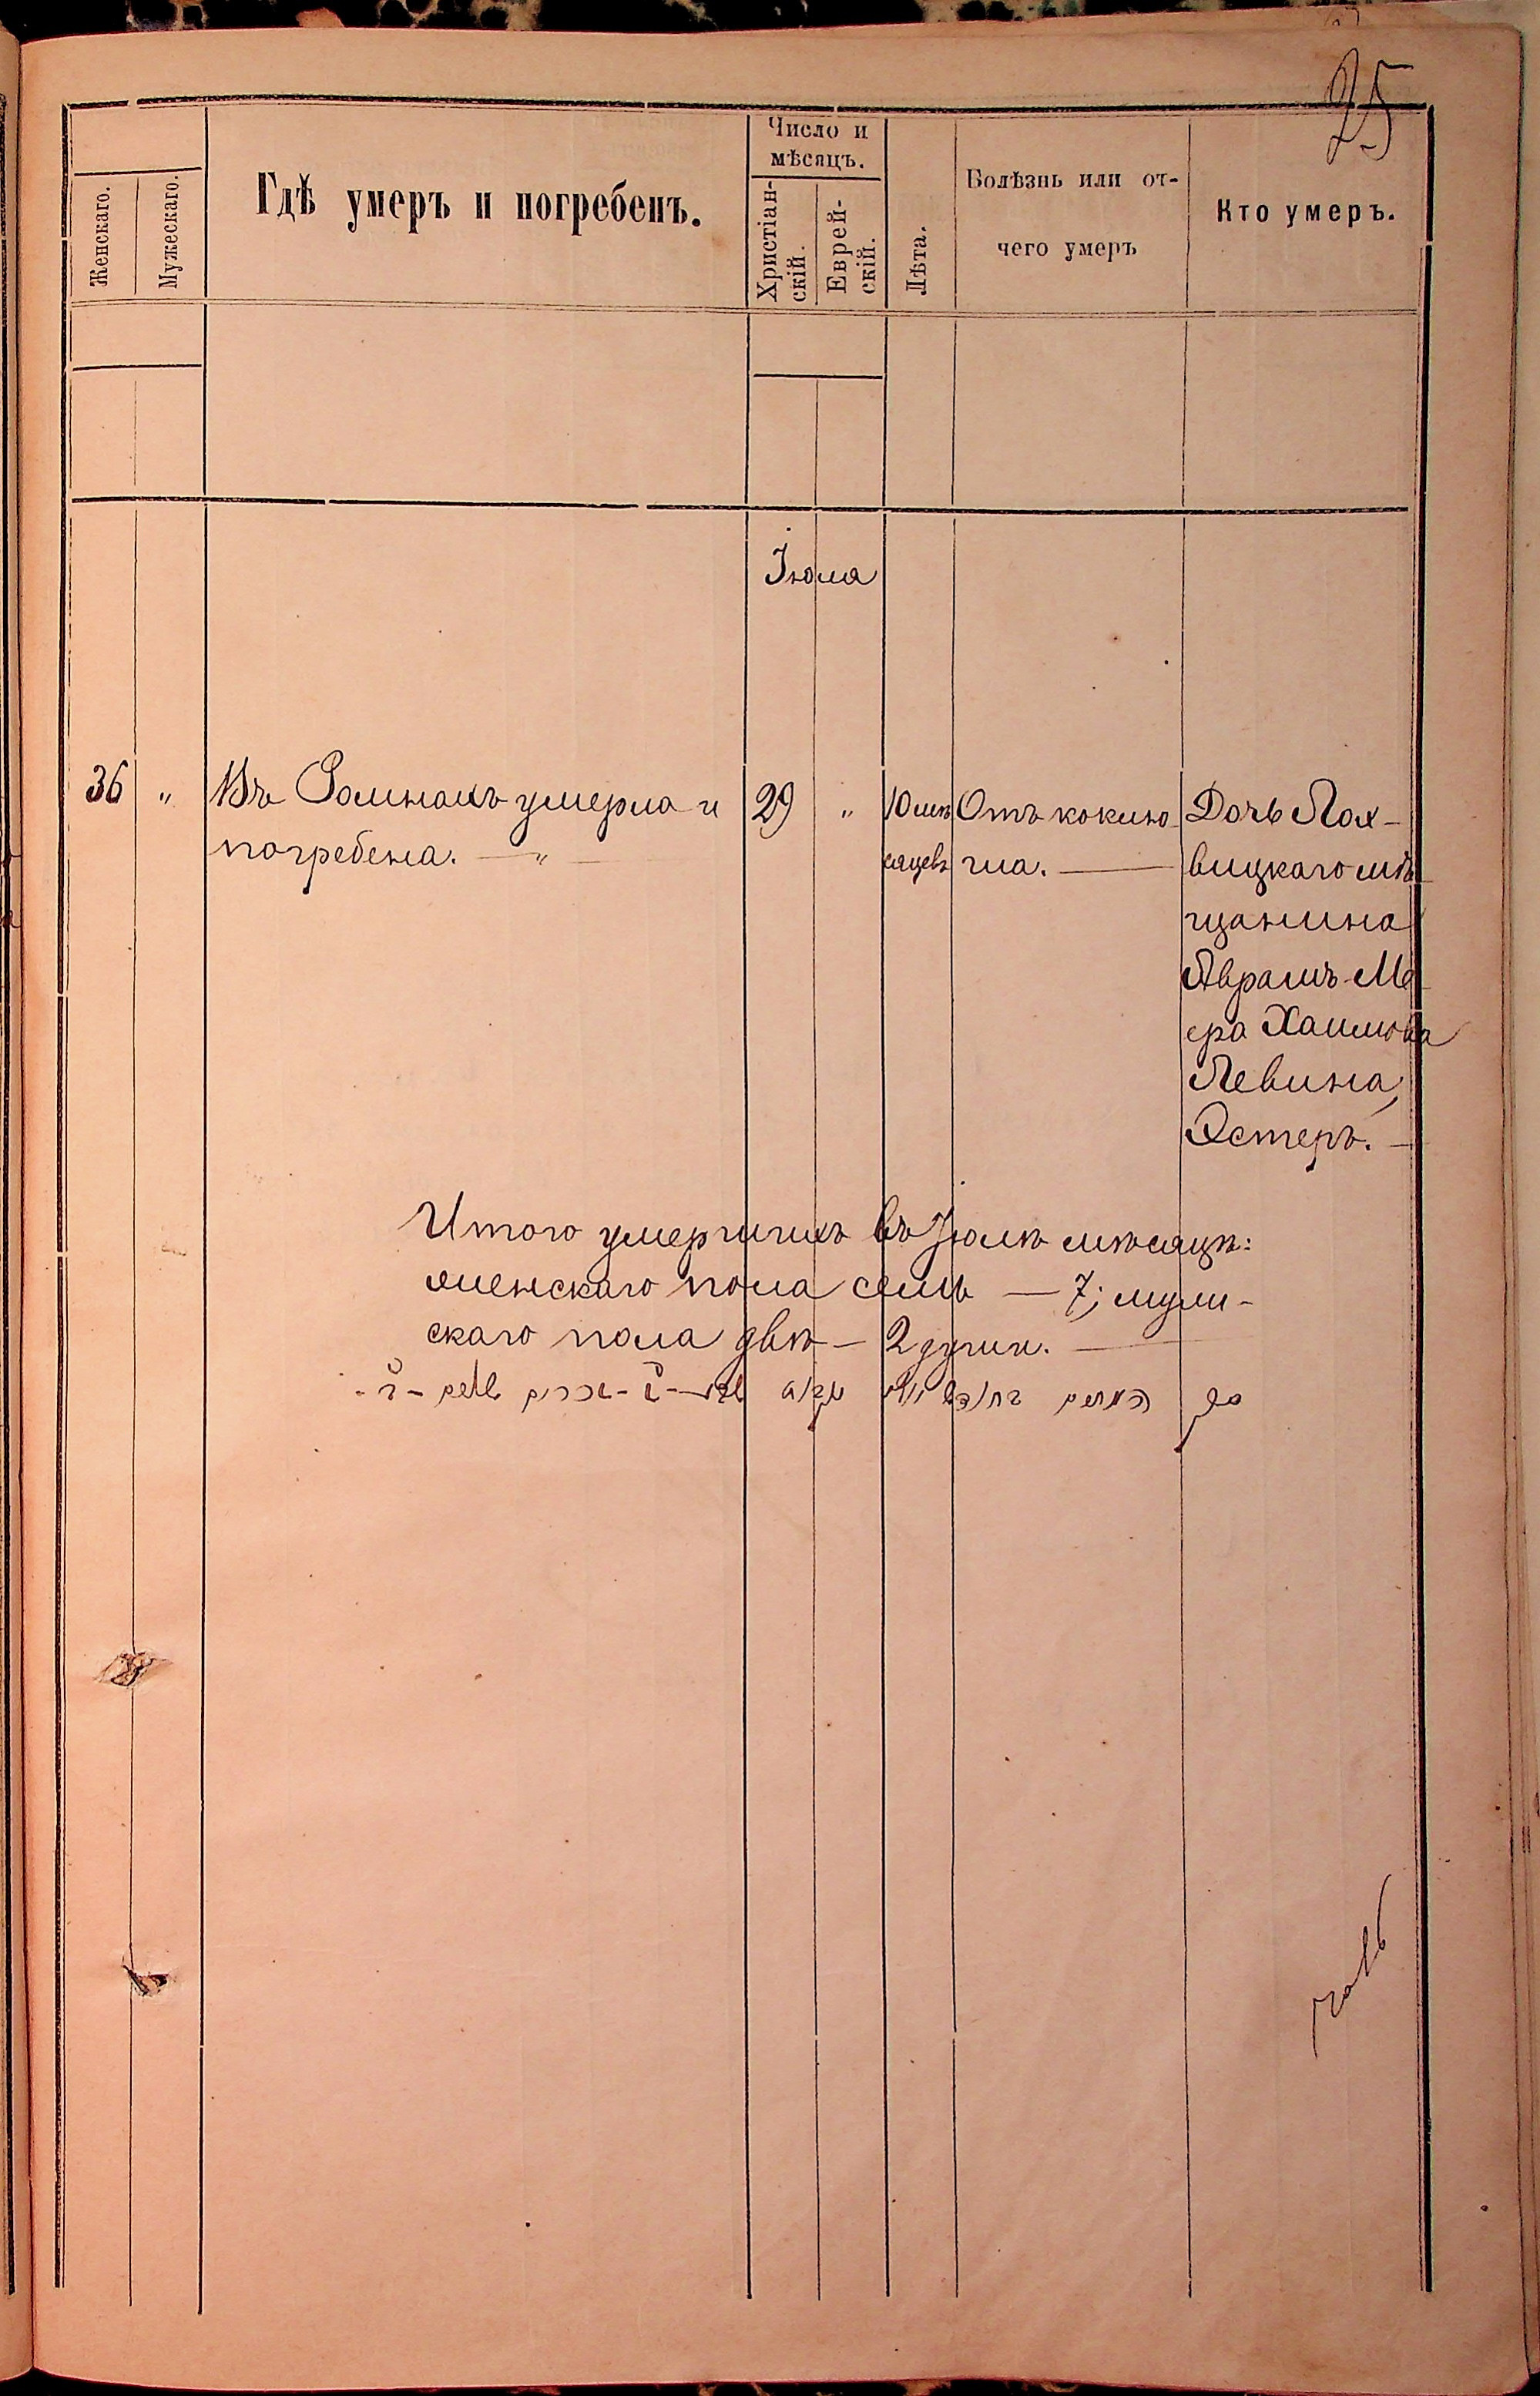 25
Женскаго.
Мужескаго.
Гдѣ умеръ и погребенъ.
Число и
мѣсяцъ.
Христіан-
скій.
Еврей-
скій.
Лѣта.
Болѣзнь или от-
чего умеръ
Кто умеръ.
Іюля
36 " Въ Ромнахъ умерла и 29 " 10 мѣ Отъ коклю Дочь Лох-
погребена. — " — сяцевъ ша. — вицкаго мѣ
щанина
Абрамъ-Ме
ера Хаимова
Левина,
Эстеръ. —
Итого умершихъ въ Іюлѣ мѣсяцѣ:
женскаго пола семь — 7; муж-
скаго пола двѣ — 2 души. —